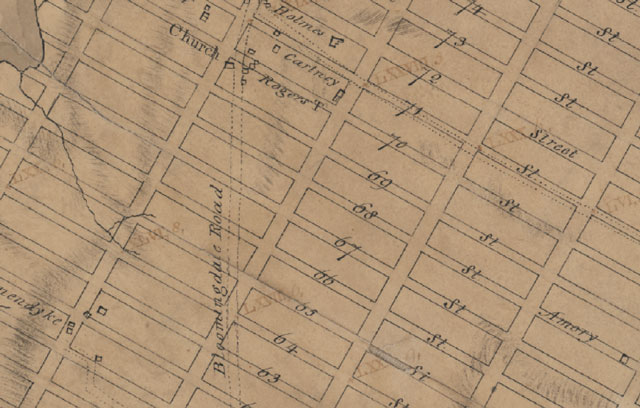 Holmes
74
73
St
Church
Cartney
72
St
Rogers
71
St
70
Street
69
St
68
St
Bloomingdale Road
67
St
66
St
65
St
64
St
63
St
Amory